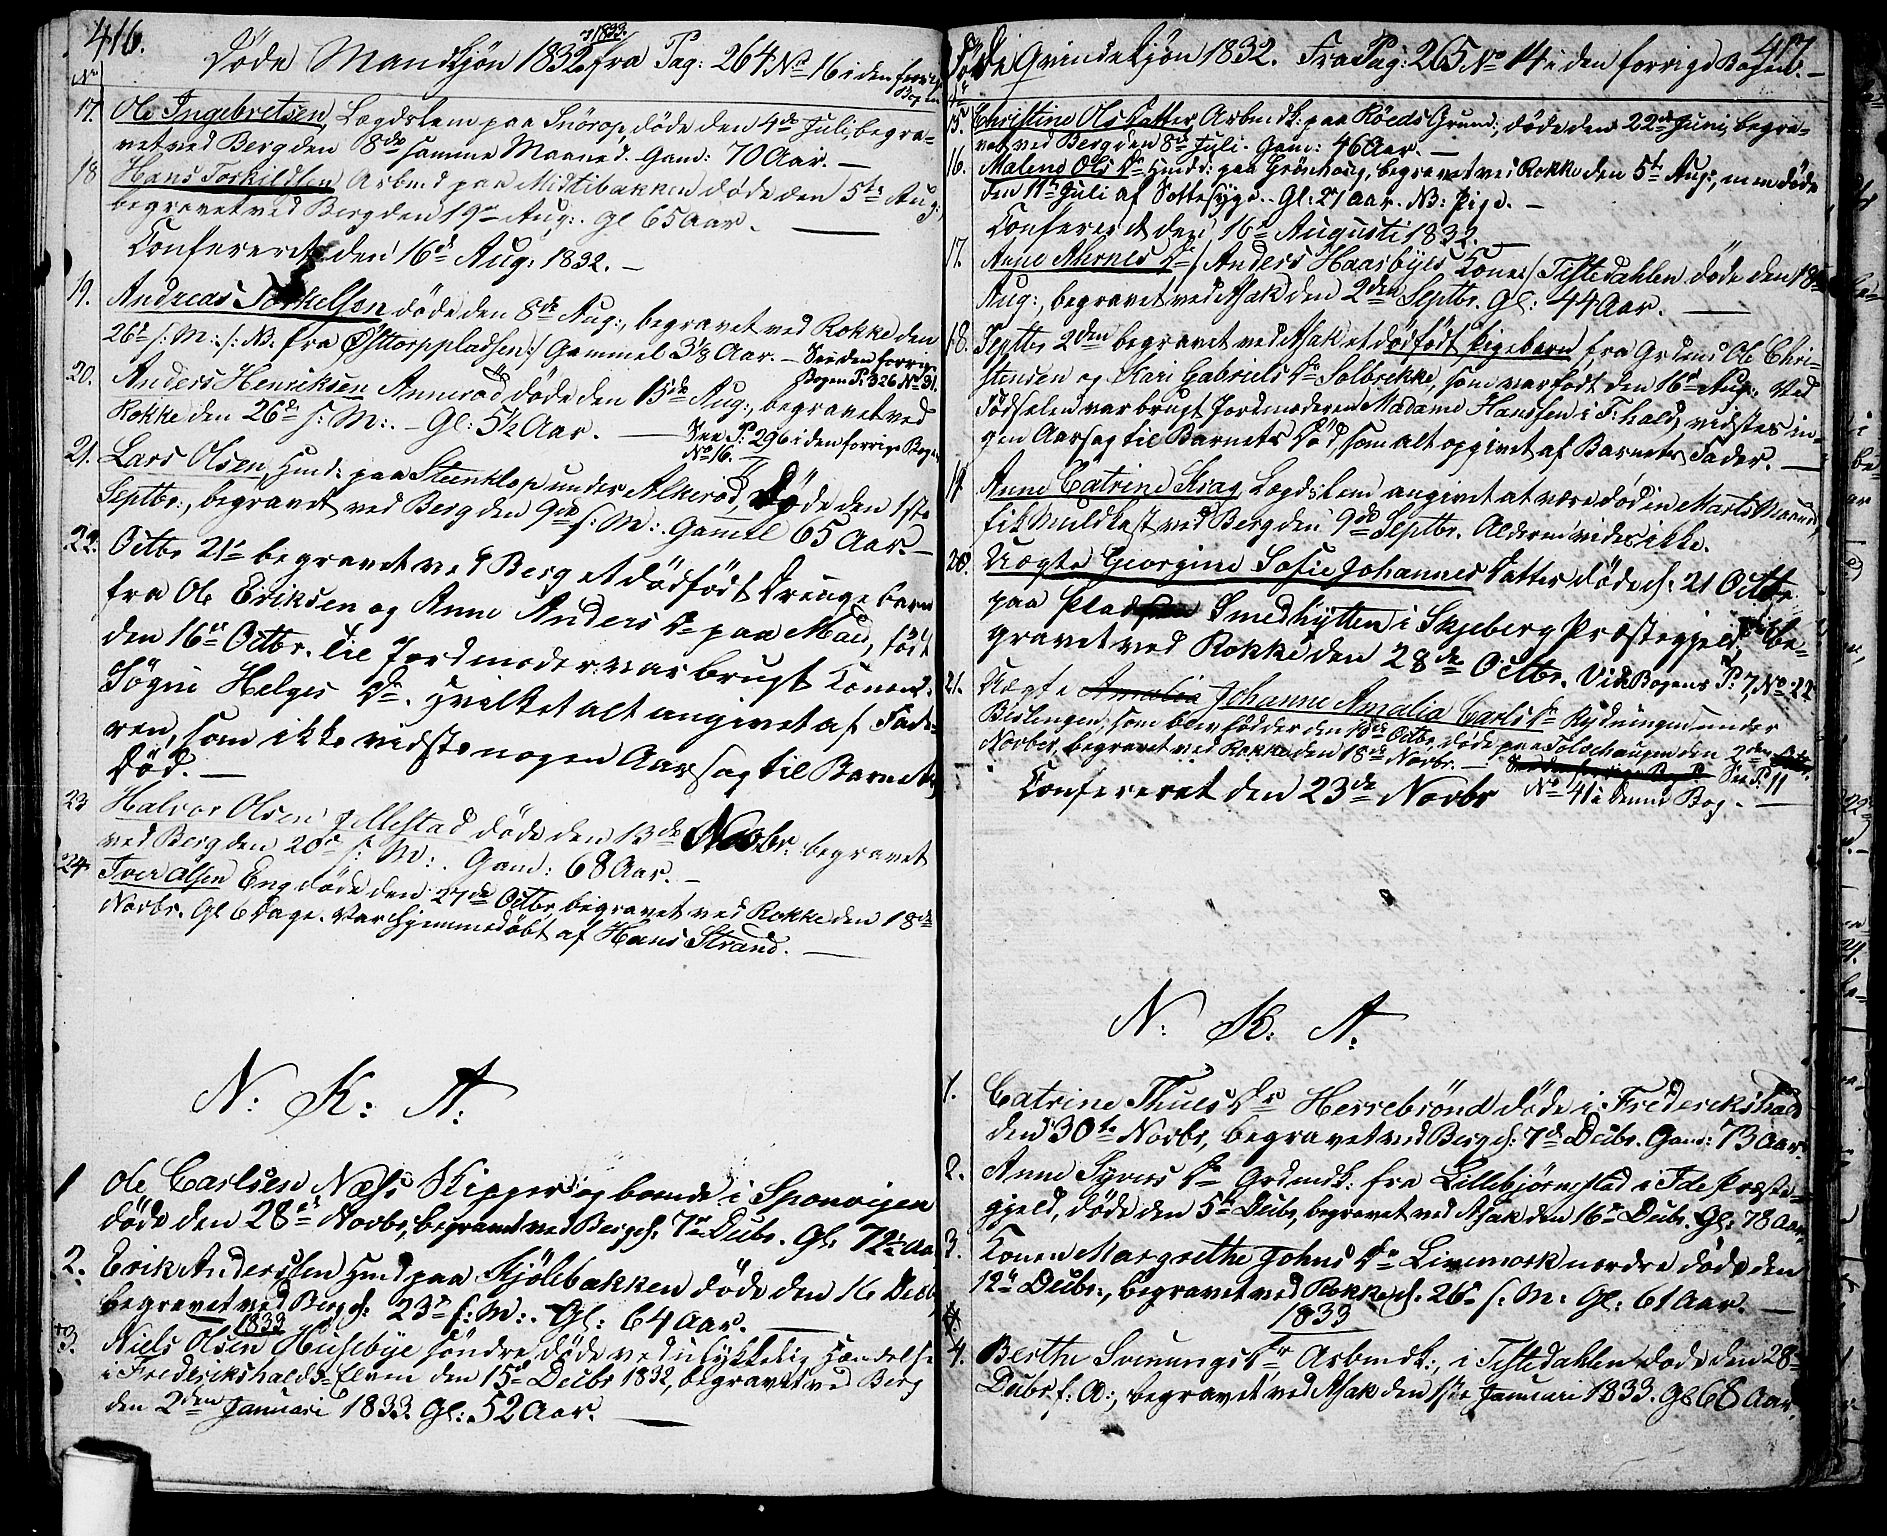 416.
Døde Mandkjøn 1832. og 1833 fra Pag: 264 No 16 i den forrige
Bog
No
17. Ole Ingebretsen, Lægdslem paa Snörop, døde den 4de Juli, begra-
vet ved Berg den 8de samme Maaned. Gaml: 70 Aar. —
18 Hans Torkildsen Arbmd paa Midtibakken døde den 5te Aug:,
begravet ved Berg den 19de Aug:. Gl 65 Aar. —
Confereret den 16de Aug: 1832. —
19. Andreas Torkelsen døde den 8de Aug:, begravet ved Rokke den
26de s: M: /: NB. fra Østtorppladsen :/ Gammel 3 1/8 Aar. — See den forrige
Bogen P: 326 No 31.
20. Anders Henriksen Annerød døde den 15de Aug:, begravet ved
Rokke den 26de s: M:. — Gl: 5 1/2 Aar. — See P: 296 i den forrige Bog
No 16. —
21. Lars Olsen Hmd: paa Steenklop under Alkerød, døde den 1ste
Septbr:, begravet ved Berg den 9de s: M: Gammel 65 Aar. —
22. Octbr 21de begravet ved Berg et dødfødt Drengebarn
fra Ole Eriksen og Anne Anders Dr paa Moed, født
den 16de Octbr. Til Jordmoder var brugt Konen
Søgni Helges Dr. Hvilket alt angivet af Fade-
ren, som ikke vidste nogen Aarsag til Barnets
Død. —
23 Halvor Olsen Jellestad døde den 13de Novbr. begravet
ved Berg den 20de s: M:. Gaml: 68 Aar. —
24. Iver Olsen Eng døde den 27de Octbr, begravet ved Rokke den 18de
Novbr. Gl 6 Dage. Var hjemmedøbt af Hans Strand. —
N: K: A:
1 Ole Carlsen Næss Skipper og boende i Sponvigen
døde den 28de Novbr, begravet ved Berg d: 7de Decbr. Gl: 72 1/2 Aa
2. Erik Anderssen Hmd paa Kjölebakken døde den 16 Decbr,
begravet ved Berg d: 23de s: M:. Gl: 64 Aar. —
1833
3. Niels Olsen Huusebye søndre døde ved ulykkelig Hændelse
i Frederikshalds-Elven den 15de Decbr 1832, begravet ved Berg
den 2den Januari 1833. Gl: 52 Aar. —
417
Døde Qvindekjøn 1832. Fra Pag: 265 No 14 i den forrige Bogen. —
No
15. Christine Ols Datter Arbmdk: paa Röeds Grund, døde den 22de Juni, begra-
vet ved Berg den 8de Juli. Gaml: 46 Aar. —
16. Malene Ols Dr Hmdd: paa Grönhoug, begravet ved Rokke den 5te Aug:, men døde
den 11te Juli af Sottesyge. Gl: 27 Aar. NB: Pige. —
Confereret den 16de Augusti 1832. —
17. Anne Ahrnes Dr /: Anders Haasbyes Kone :/ Tistedahlen døde den 18de
Aug:, begravet ved Asak den 2den Septbr. Gl: 44 Aar. —
18. Septbr 2den begravet ved Asak et dødfødt Pigebarn, fra Grdmd Ole Chri-
stensen og Kari Gabriels Dr Solbrekke, som var født den 16de Aug:. Ved
Fødselen var brugt Jordmoderen Madame Hanssen i F:hald, vidstes in-
gen Aarsag til Barnets Død, som alt opgivet af Barnets Fader. —
19. Anne Catrine Krag Lægdslem angivet at være død i Marts Maaned,
fik Muldkast ved Berg den 9de Septbr. Alderen vides ikke.
20. Uægte Georgine Sofie Johannes Datter døde d: 21 Octbr
paa Pladsen Smedhytten i Skjeberg Præstegjeld, be-
gravet ved Rokke den 28de Octbr. Vide Bogens P: 7, No 22
21. Uægte Amalia Johanne Amalia Carls Dr Rydningen under
Bislingen, som blev født der den 13de Octbr, døde paa den 2den
Novber, begravet ved Rokke den 18de Novbr. — See P. 11
No 41 i denne Bog. —
Confereret den 23de Novbr
N: K: A:
1. Catrine Thues Dr Herrebrönd døde i Frederikshald
den 30te Novbr, begravet ved Berg d: 7de Decbr. Gaml: 73 Aar.
2. Anne Syvers Dr Grdmdk: fra Lillebjørnstad i Ide Præste-
gjeld, døde den 5te Decbr, begravet ved Asak den 16de Decbr. Gl: 78 Aar.
3. Konen Margrethe Johns Dr Livemork nordre døde den
12te Decbr:, begravet ved Rokke d. 26de s: M: Gl: 61 Aar. —
1833
4. Berthe Svenungs Dr Arbmdk:, i Tistedahlen døde den 28de
Decbr f: A:, begravet ved Asak den 1ste Januari 1833. Gl 68 Aar.